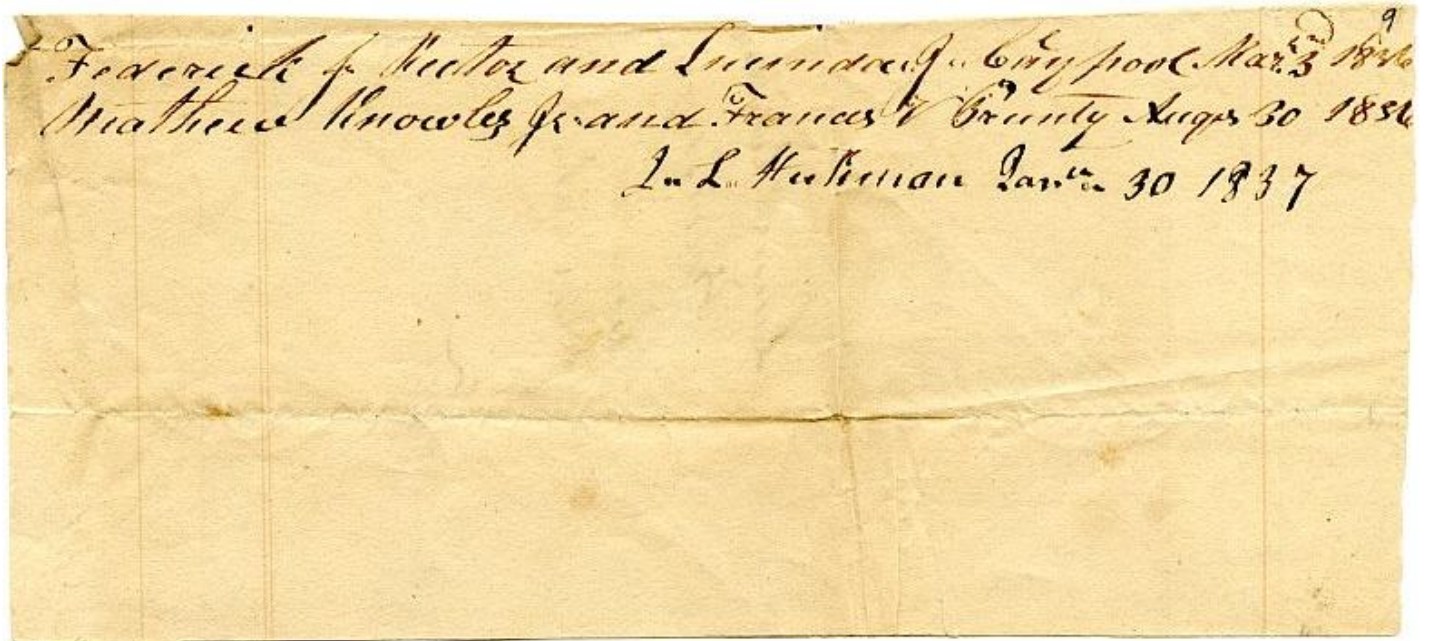 Federick J. Rector and Lucinda J. Claypool Mar. 3rd 1836
Mathew Knowles Jr and Frances V Prunty Augs 30 1836
Jn L. Hickman 30 1837